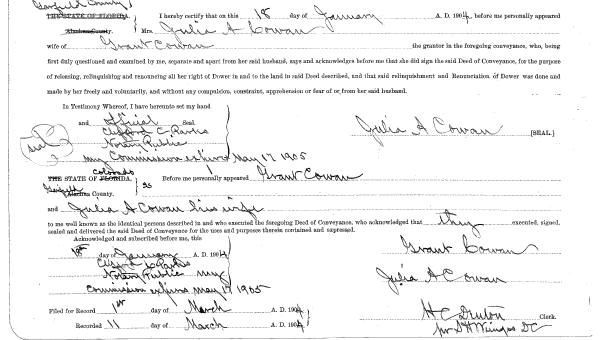 Garfield County
THE STATE OF FLORIDA, I hereby certify that on this 18 day of January A. D. 1904, before me personally appeared
Alachua County. Mrs. Julia A Cowan
wife of Grant Cowan the grantor in the foregoing conveyance, who, being
first duly questioned and examined by me, separate and apart from her said husband, says and acknowledges before me that she did sign the said Deed of Conveyance, for the purpose
of releasing, relinquishing and renouncing all her right of Dower in and to the land in said Deed described, and that said relinquishment and Renunciation of Dower was done and
made by her freely and voluntarily, and without any compulsion, constraint, apprehension or fear of or from her said husband.
In Testimony Whereof, I have hereunto set my hand
and official Seal
Clifford C Parks
Julia A Cowan [SEAL.]
Notary Public
seal
my Commission expires May 17 1905
Colorado
THE STATE OF FLORIDA, Before me personally appeared Grant Cowan
Garfield
Alachua County. ss
and Julia A Cowan his wife
to me well known as the identical persons described in and who executed the foregoing Deed of Conveyance, who acknowledged that they executed, signed,
sealed and delivered the said Deed of Conveyance for the uses and purposes therein contained and expressed.
Acknowledged and subscribed before me, this
18 day of January A. D. 1904
Grant Cowan
Clifford C Parks
Notary Public my
Julia A Cowan
Commission expires may 17 1905
Filed for Record 1st day of March A. D. 1904
H C Denton Clerk.
Recorded 11 day of March A. D. 1904
per S H Wienges DC